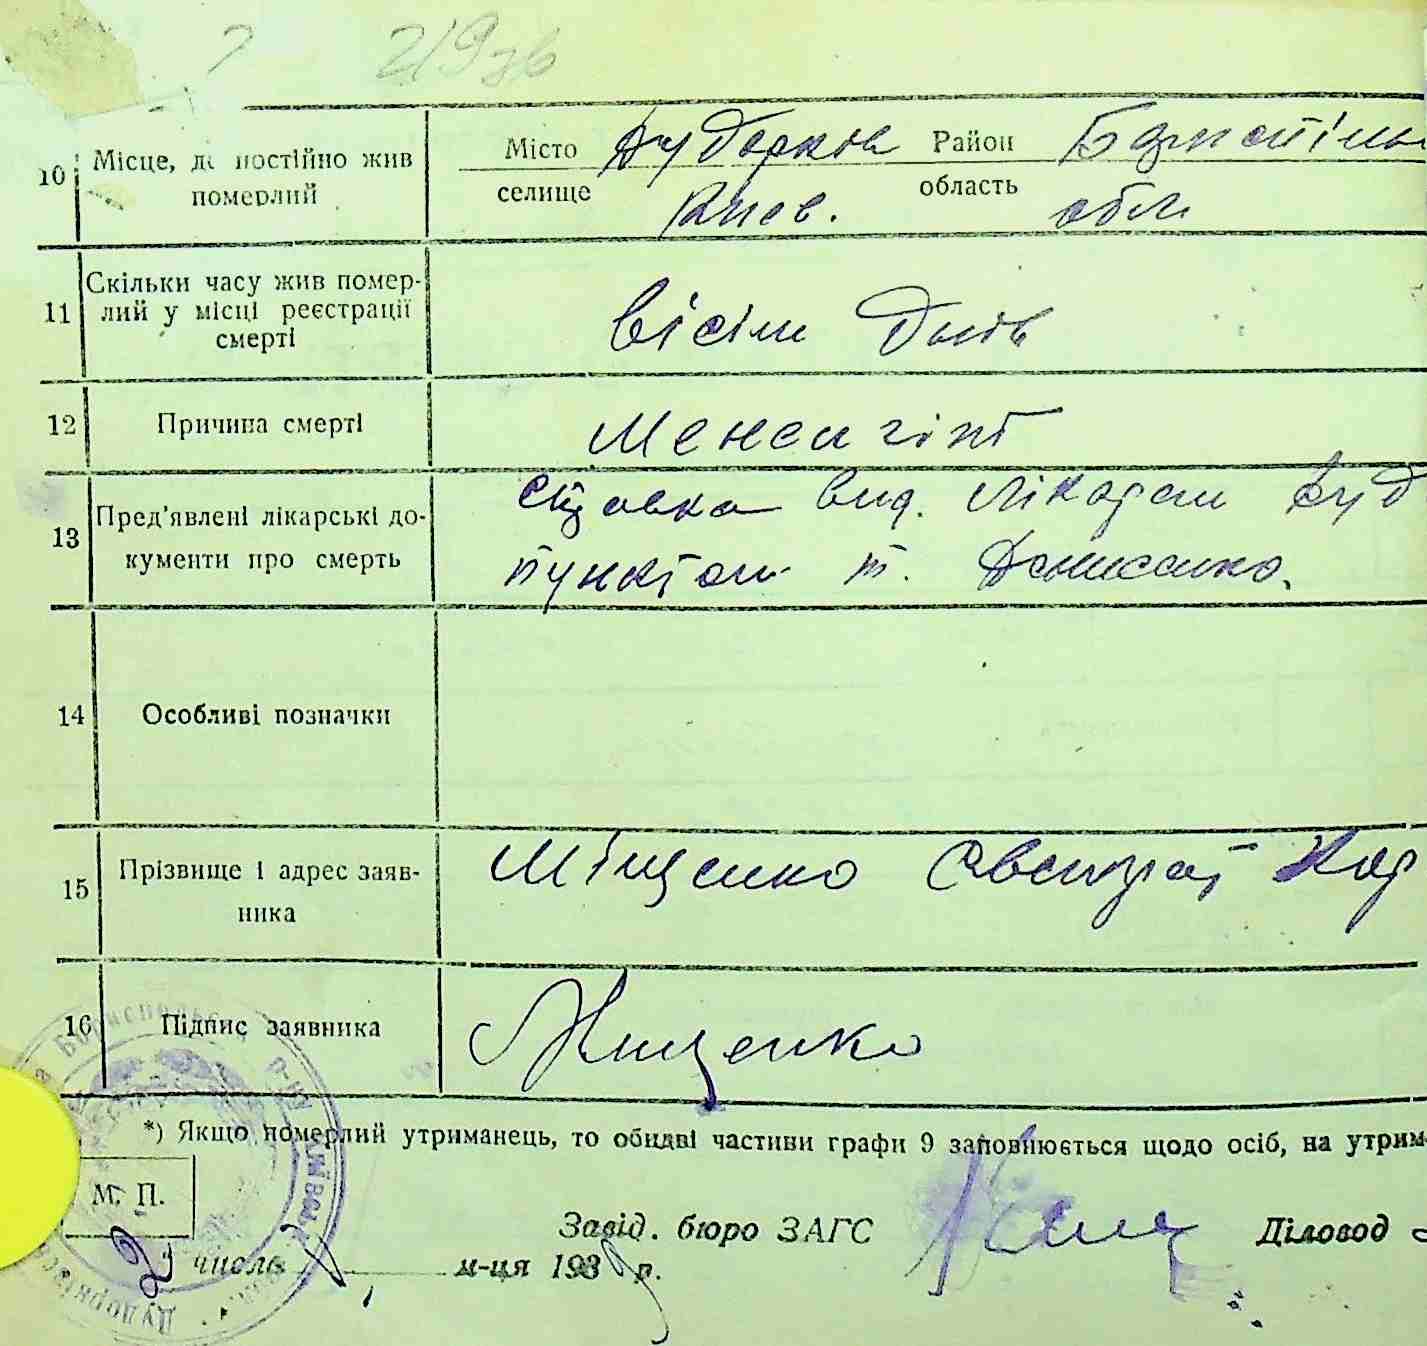 219зв
10 Місце, де постійно жив померлий Місто Дударков Район Бориспіль
селище Київ. область обл
11 Скільки часу жив помер-
лий у місці реєстрації
смерті
Вісім днів
12 Причина смерті Менсигіт
13 Пред'явлені лікарські до-
кументи про смерть
справка вид. лікарем Дуд
пунктом т. Денисенко.
14 Особливі позначки
15 Прізвище і адрес заяв-
ника
Міщенко Кар
16 Підпис заявника Міщенко
*) Якщо померлий утриманець, то обидві частини графи 9 заповнюється щодо осіб, на утрим
М. П.
Завід. бюро ЗАГС Діловод
2 числа м-ця 193 р.